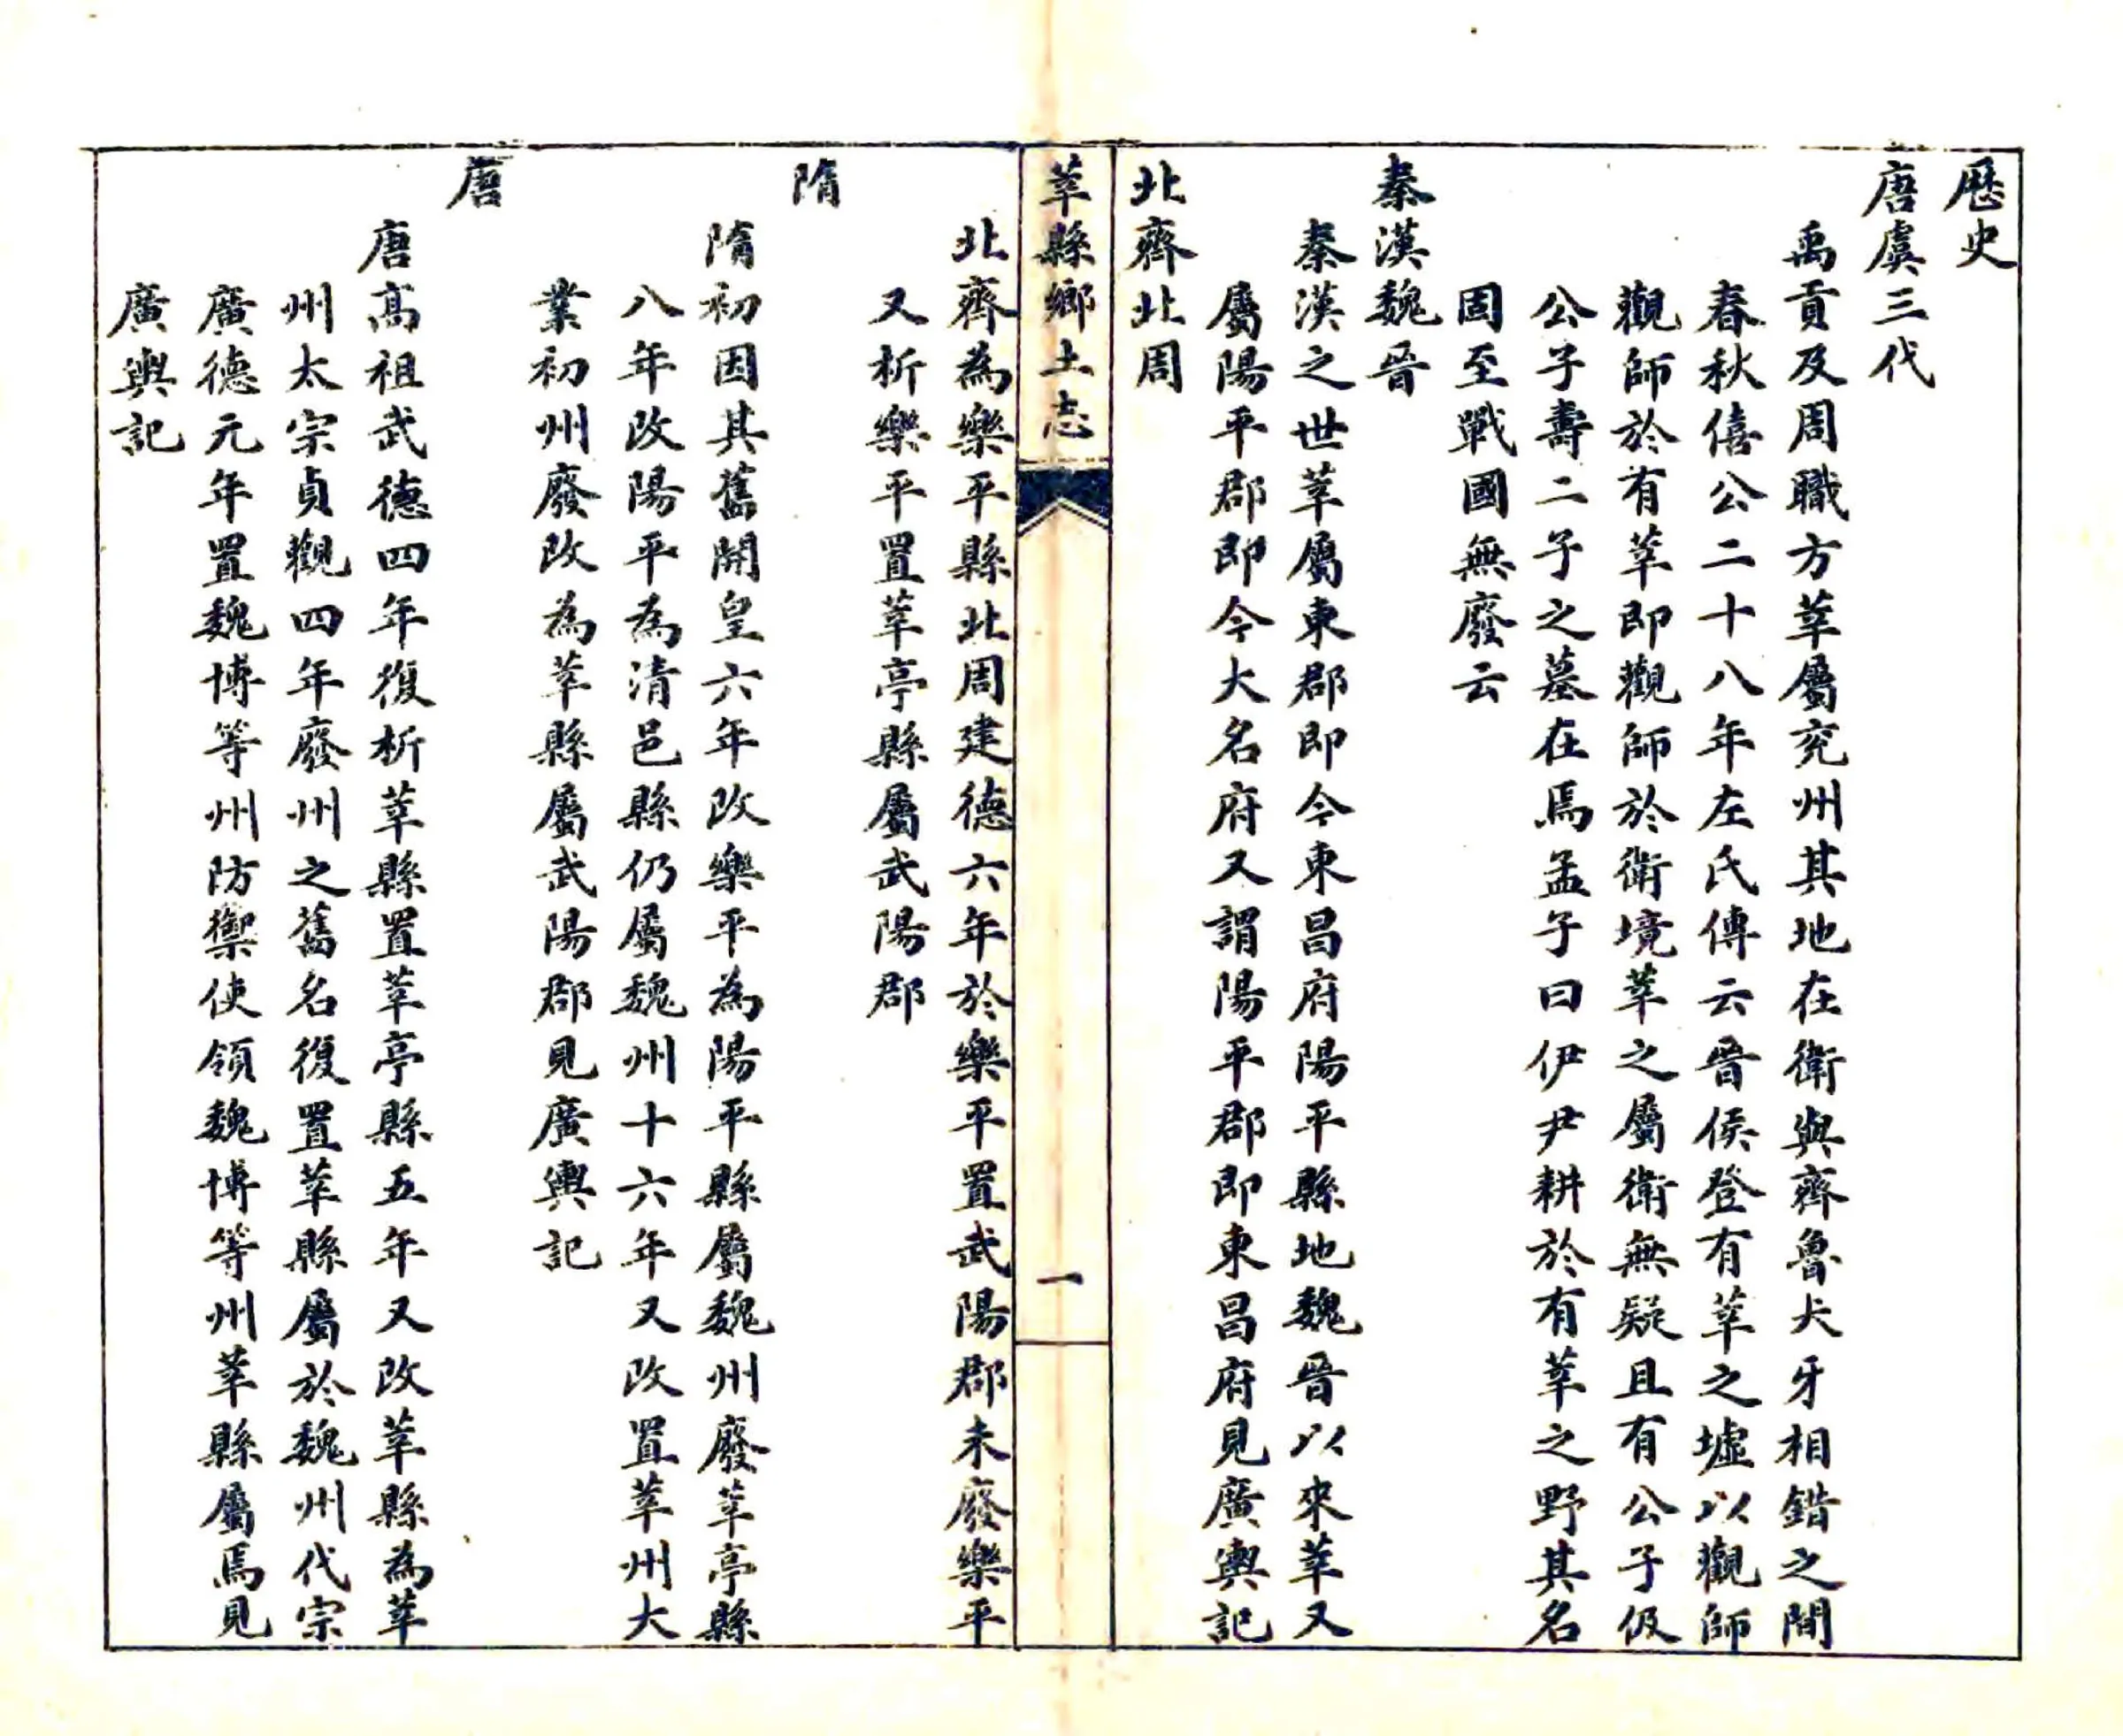 歷史
唐虞三代
禹貢及周職方莘屬兖州其地在衛與齊魯犬牙相錯之間
春秋僖公二十八年左氏傳云晉侯登有莘之墟以觀師
觀師於有莘即觀師於衛境莘之屬衛無疑且有公子伋
公子壽二子之墓在焉孟子曰伊尹耕於有莘之野其名
固至戰國無廢云
秦漢魏晉
秦漢之世莘屬東郡即今東昌府陽平縣地魏晉以來莘又
屬陽平郡即今大名府又謂陽平郡即東昌府見廣輿記
北齊北周
莘縣鄉土志
一
北齊為樂平縣北周建德六年於樂平置武陽郡未廢樂平
又析樂平置莘亭縣屬武陽郡
隋
隋初因其舊開皇六年改樂平為陽平縣屬魏州廢莘亭縣
八年改陽平為清邑縣仍屬魏州十六年又改置莘州大
業初州廢改為莘縣屬武陽郡見廣輿記
唐
唐高祖武德四年復析莘縣置莘亭縣五年又改莘縣為莘
州太宗貞觀四年廢州之舊名復置莘縣屬於魏州代宗
廣德元年置魏博等州防禦使領魏博等州莘縣屬焉見
廣輿記